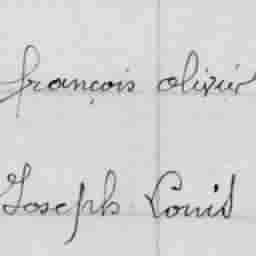 françois olivier
Joseph Louis